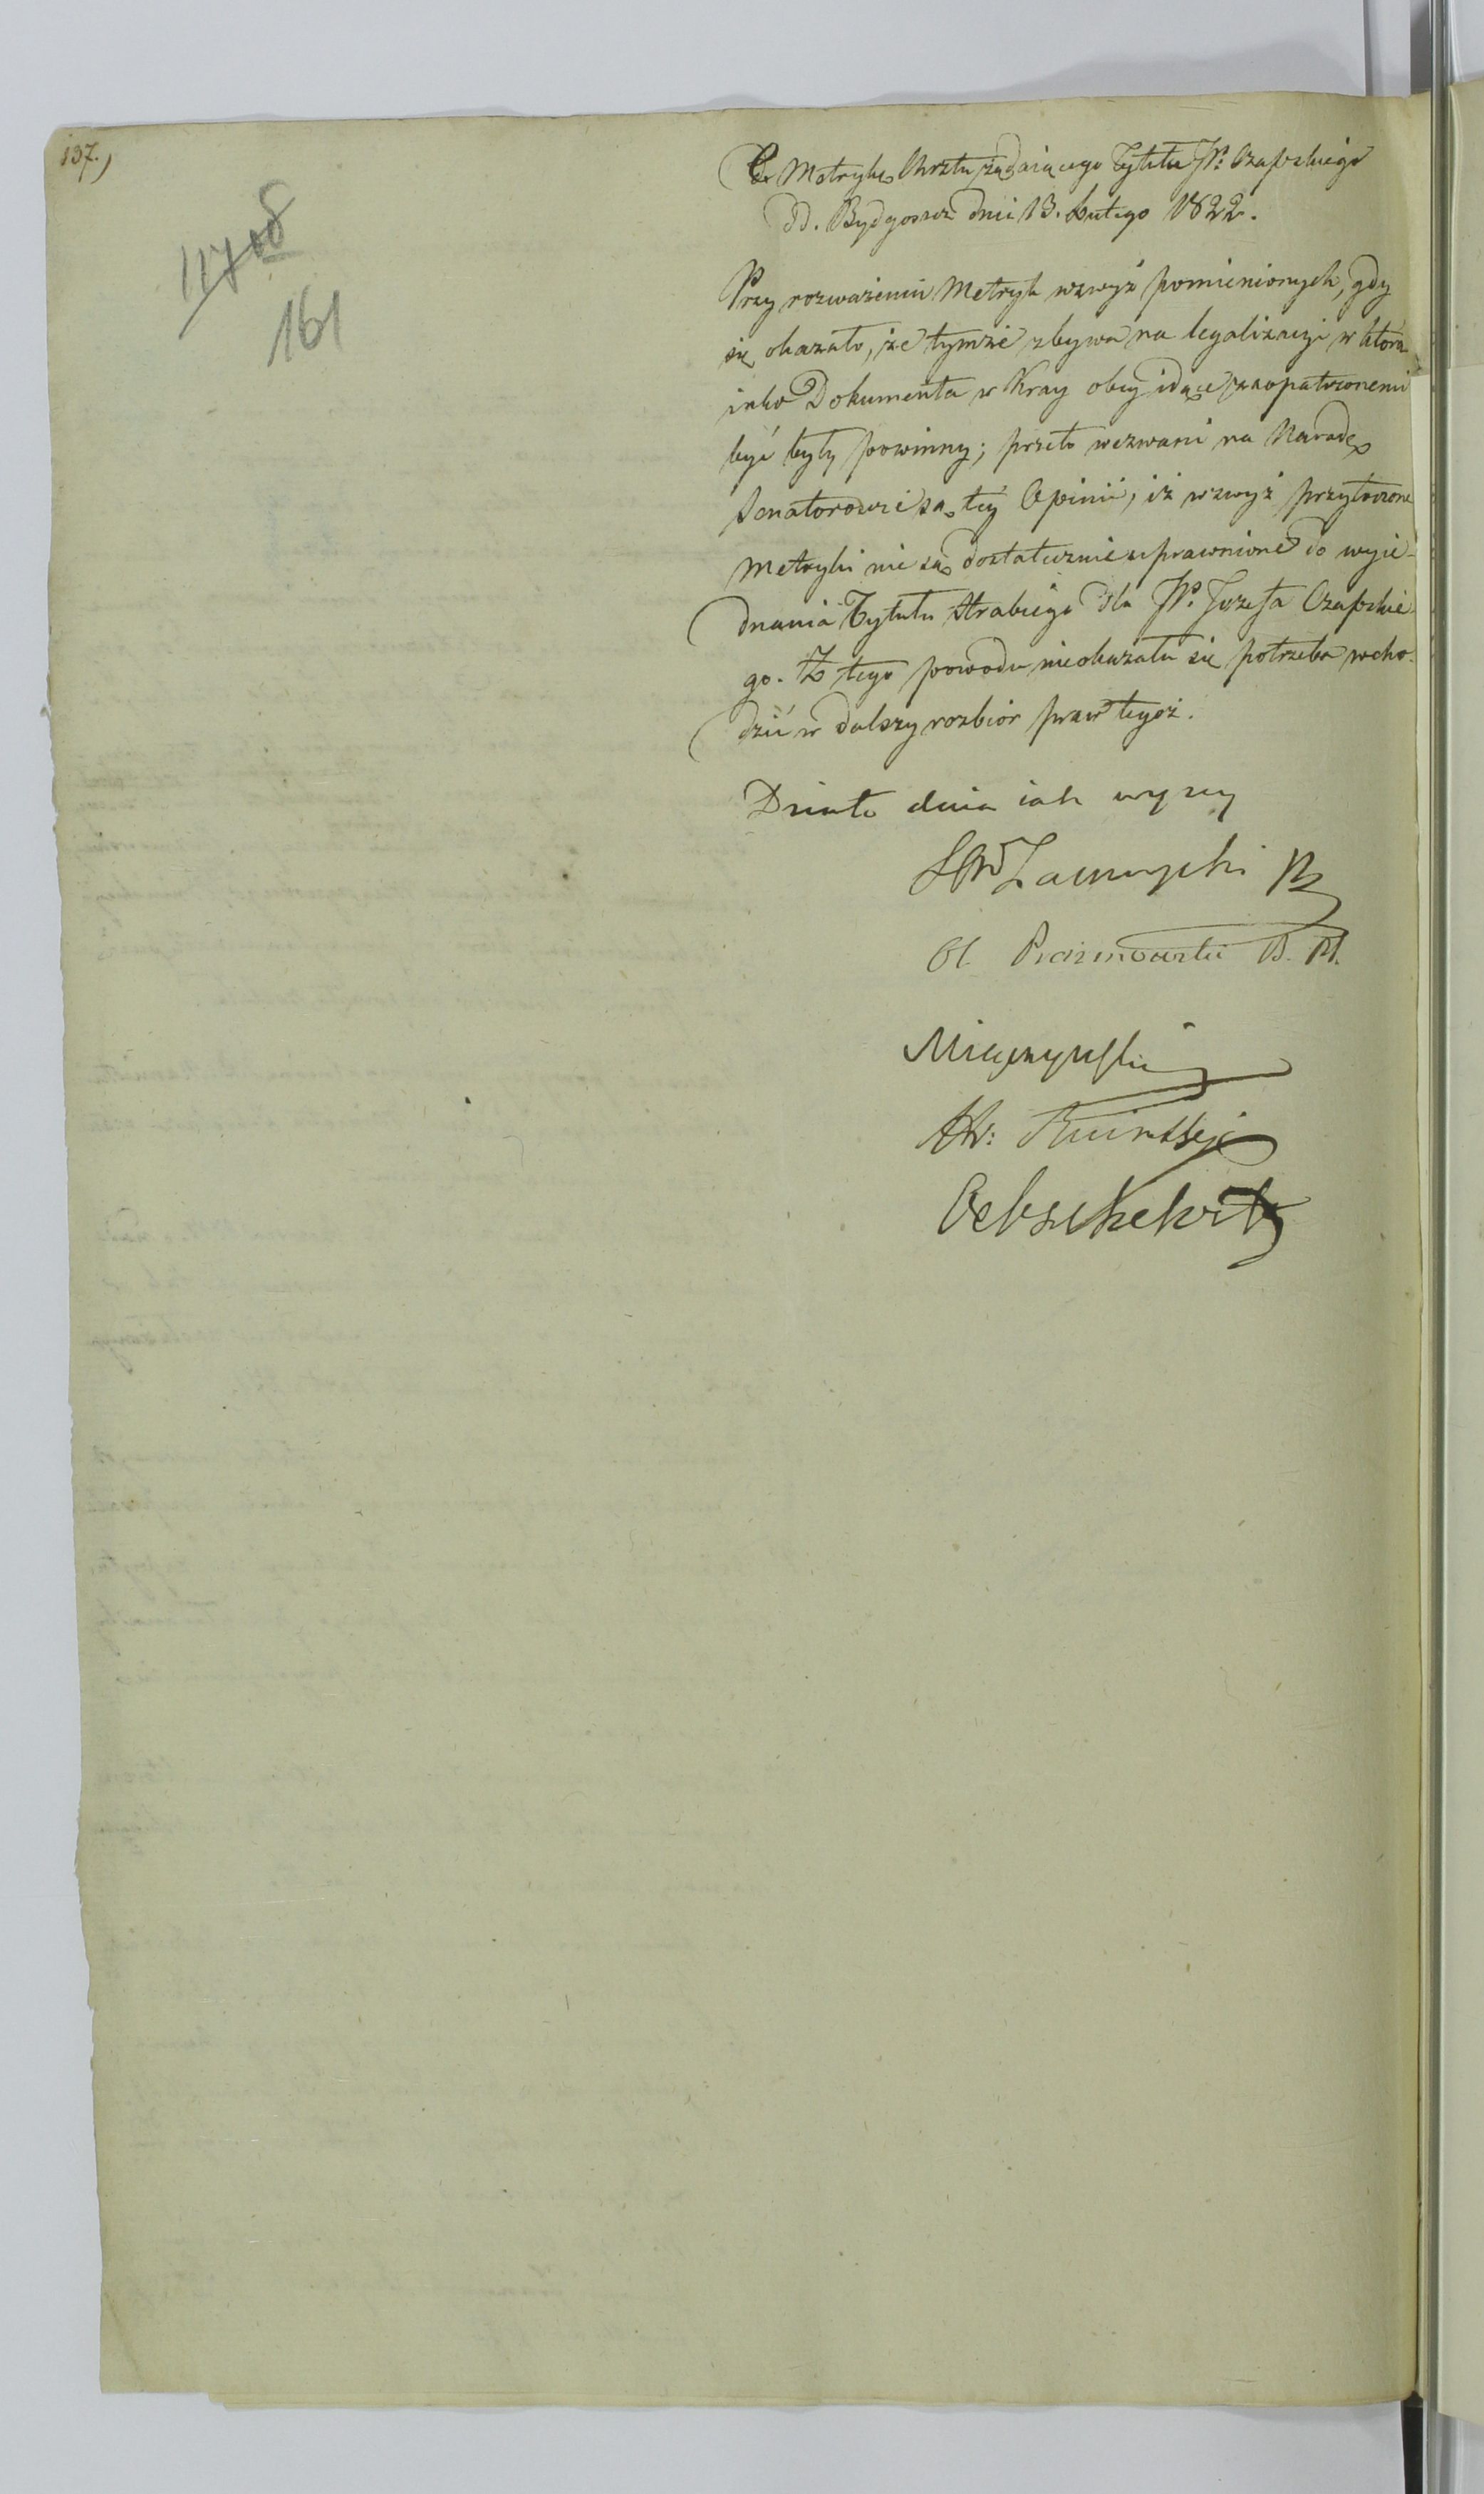 137.)
117 08
161
C. Metrykę Chrztu żądaiącego Tytułu JP. Czapskiego
dd. Bydgoszcz dnii 13. Lutego 1822.
Przy rozważeniu Metryk wzwyż pomienionych, gdy
się okazało, że tymże zbywa na legalizacyi w którą
iako Dokumenta w Kray obcy idące zaopatrzonemi
być były powinny; przeto wezwani na Naradę
Senatorowie są tey Opinii, iż wzwyż przytoczone
Metryki nie są dostatecznie uprawnione do wyie-
dnania Tytułu Hrabiego dla JP. Jozefa Czapskie-
go. Z tego powodu nieokazała się potrzeba wcho-
dzić w dalszy rozbiór praw tegoż.
Działo dnia iak wyzey
Zamoyski
Prazmowski B. P.
Miączynski